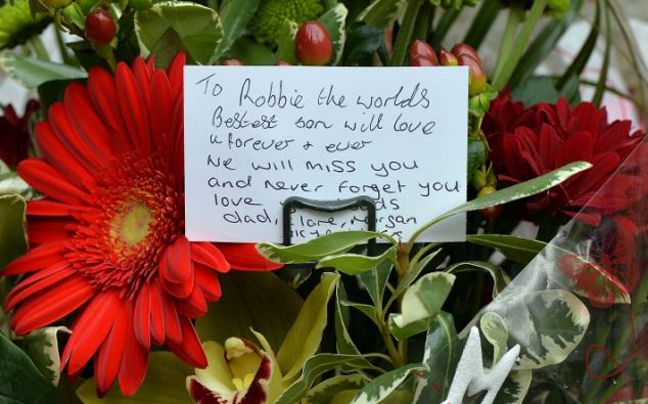 To Robbie the worlds
Bestest son will love
u forever + ever
We will miss you
and never forget you
love
dad, Morgan